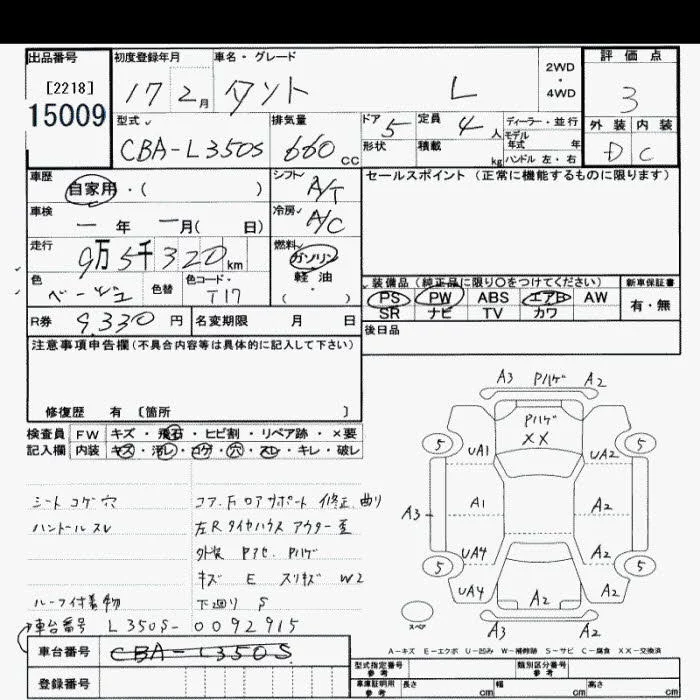 出品番号
[2218]
15009
初度登録年月
17 2月
車名・グレード
タント L
2WD
・
4WD
評価点
3
外装 内装
D C
型式
CBA-L350S
排気量
660 cc
ドア 5
定員 4 人
形状
積載 kg
ディーラー・並行
モデル年式 年
ハンドル 左・右
車歴
自家用・( )
シフト
A/T
車検
一 年 一月( 日)
冷房
A/C
走行
9万5千320km
燃料
ガソリン
軽油
( )
色
ベージュ
色替
色コード
T17
R券 9,330 円
名変期限 月 日
セールスポイント (正常に機能するものに限ります)
装備品 (純正品に限り○をつけてください)
新車保証書
PS PW ABS エアB AW
SR ナビ TV カワ
有・無
後日品
注意事項申告欄(不具合内容等は具体的に記入して下さい)
修復歴 有 [箇所 ]
検査員 FW キズ・飛石・ヒビ割・リペア跡・×要
記入欄 内装 キズ・汚レ・コゲ・穴・スレ・キレ・破レ
シート コゲ 穴
ハンドル スレ
ルーフ付着物
コア.F ロアサポート 修正 曲り
左Rタイヤハウス アウター 歪
外装 Pアセ. Pハゲ
キズ E スリキズ W2
下回り S
車台番号 L350S-0092915
車台番号 CBA-L350S
登録番号
A3 Pハゲ A2
Pハゲ
XX
5 UA1 UA2 5
A3 A1 A2
UA4 A2
5 UA4 A2 A2 5
スペア
A3 A2
A-キズ E-エクボ U-凹み W-補修跡 S-サビ C-腐食 XX-交換済
型式指定番号
参考
類別区分番号
参考
車庫証明用
参考
長さ cm
幅 cm
高さ cm